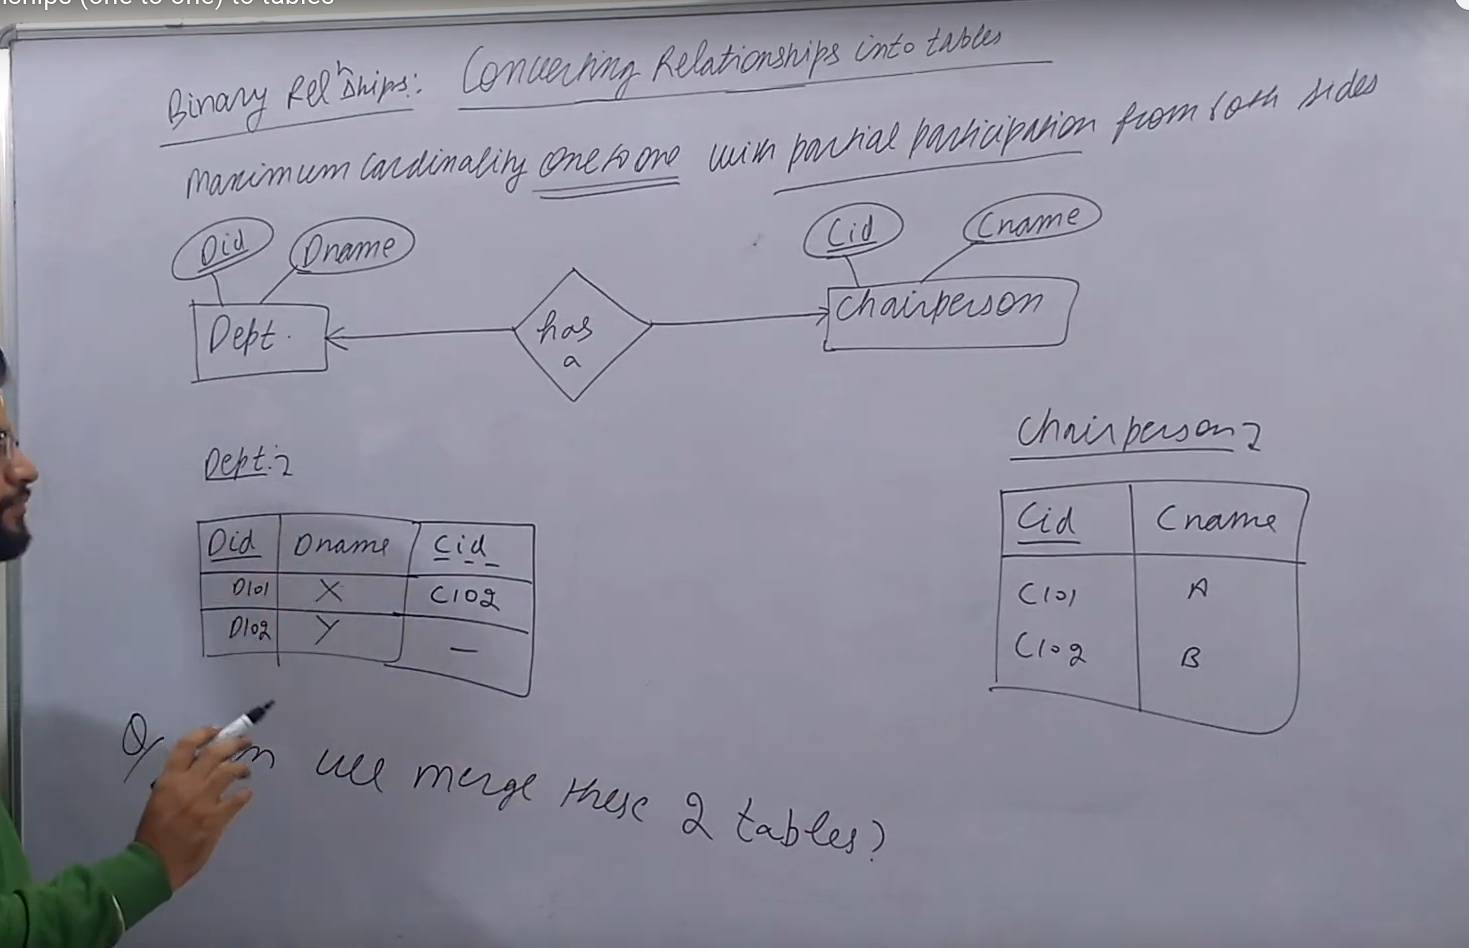 nships (one to one) to tables
Binary Relnships: Converting Relationships into tables
Maximum Cardinality one to one with partial participation from both sides
Did Dname Cid Cname
Dept. has a Chairperson
Dept:
Chairperson
Did Dname Cid
D101 X C102
D102 Y —
Cid Cname
C101 A
C102 B
Q/ we merge these 2 tables?